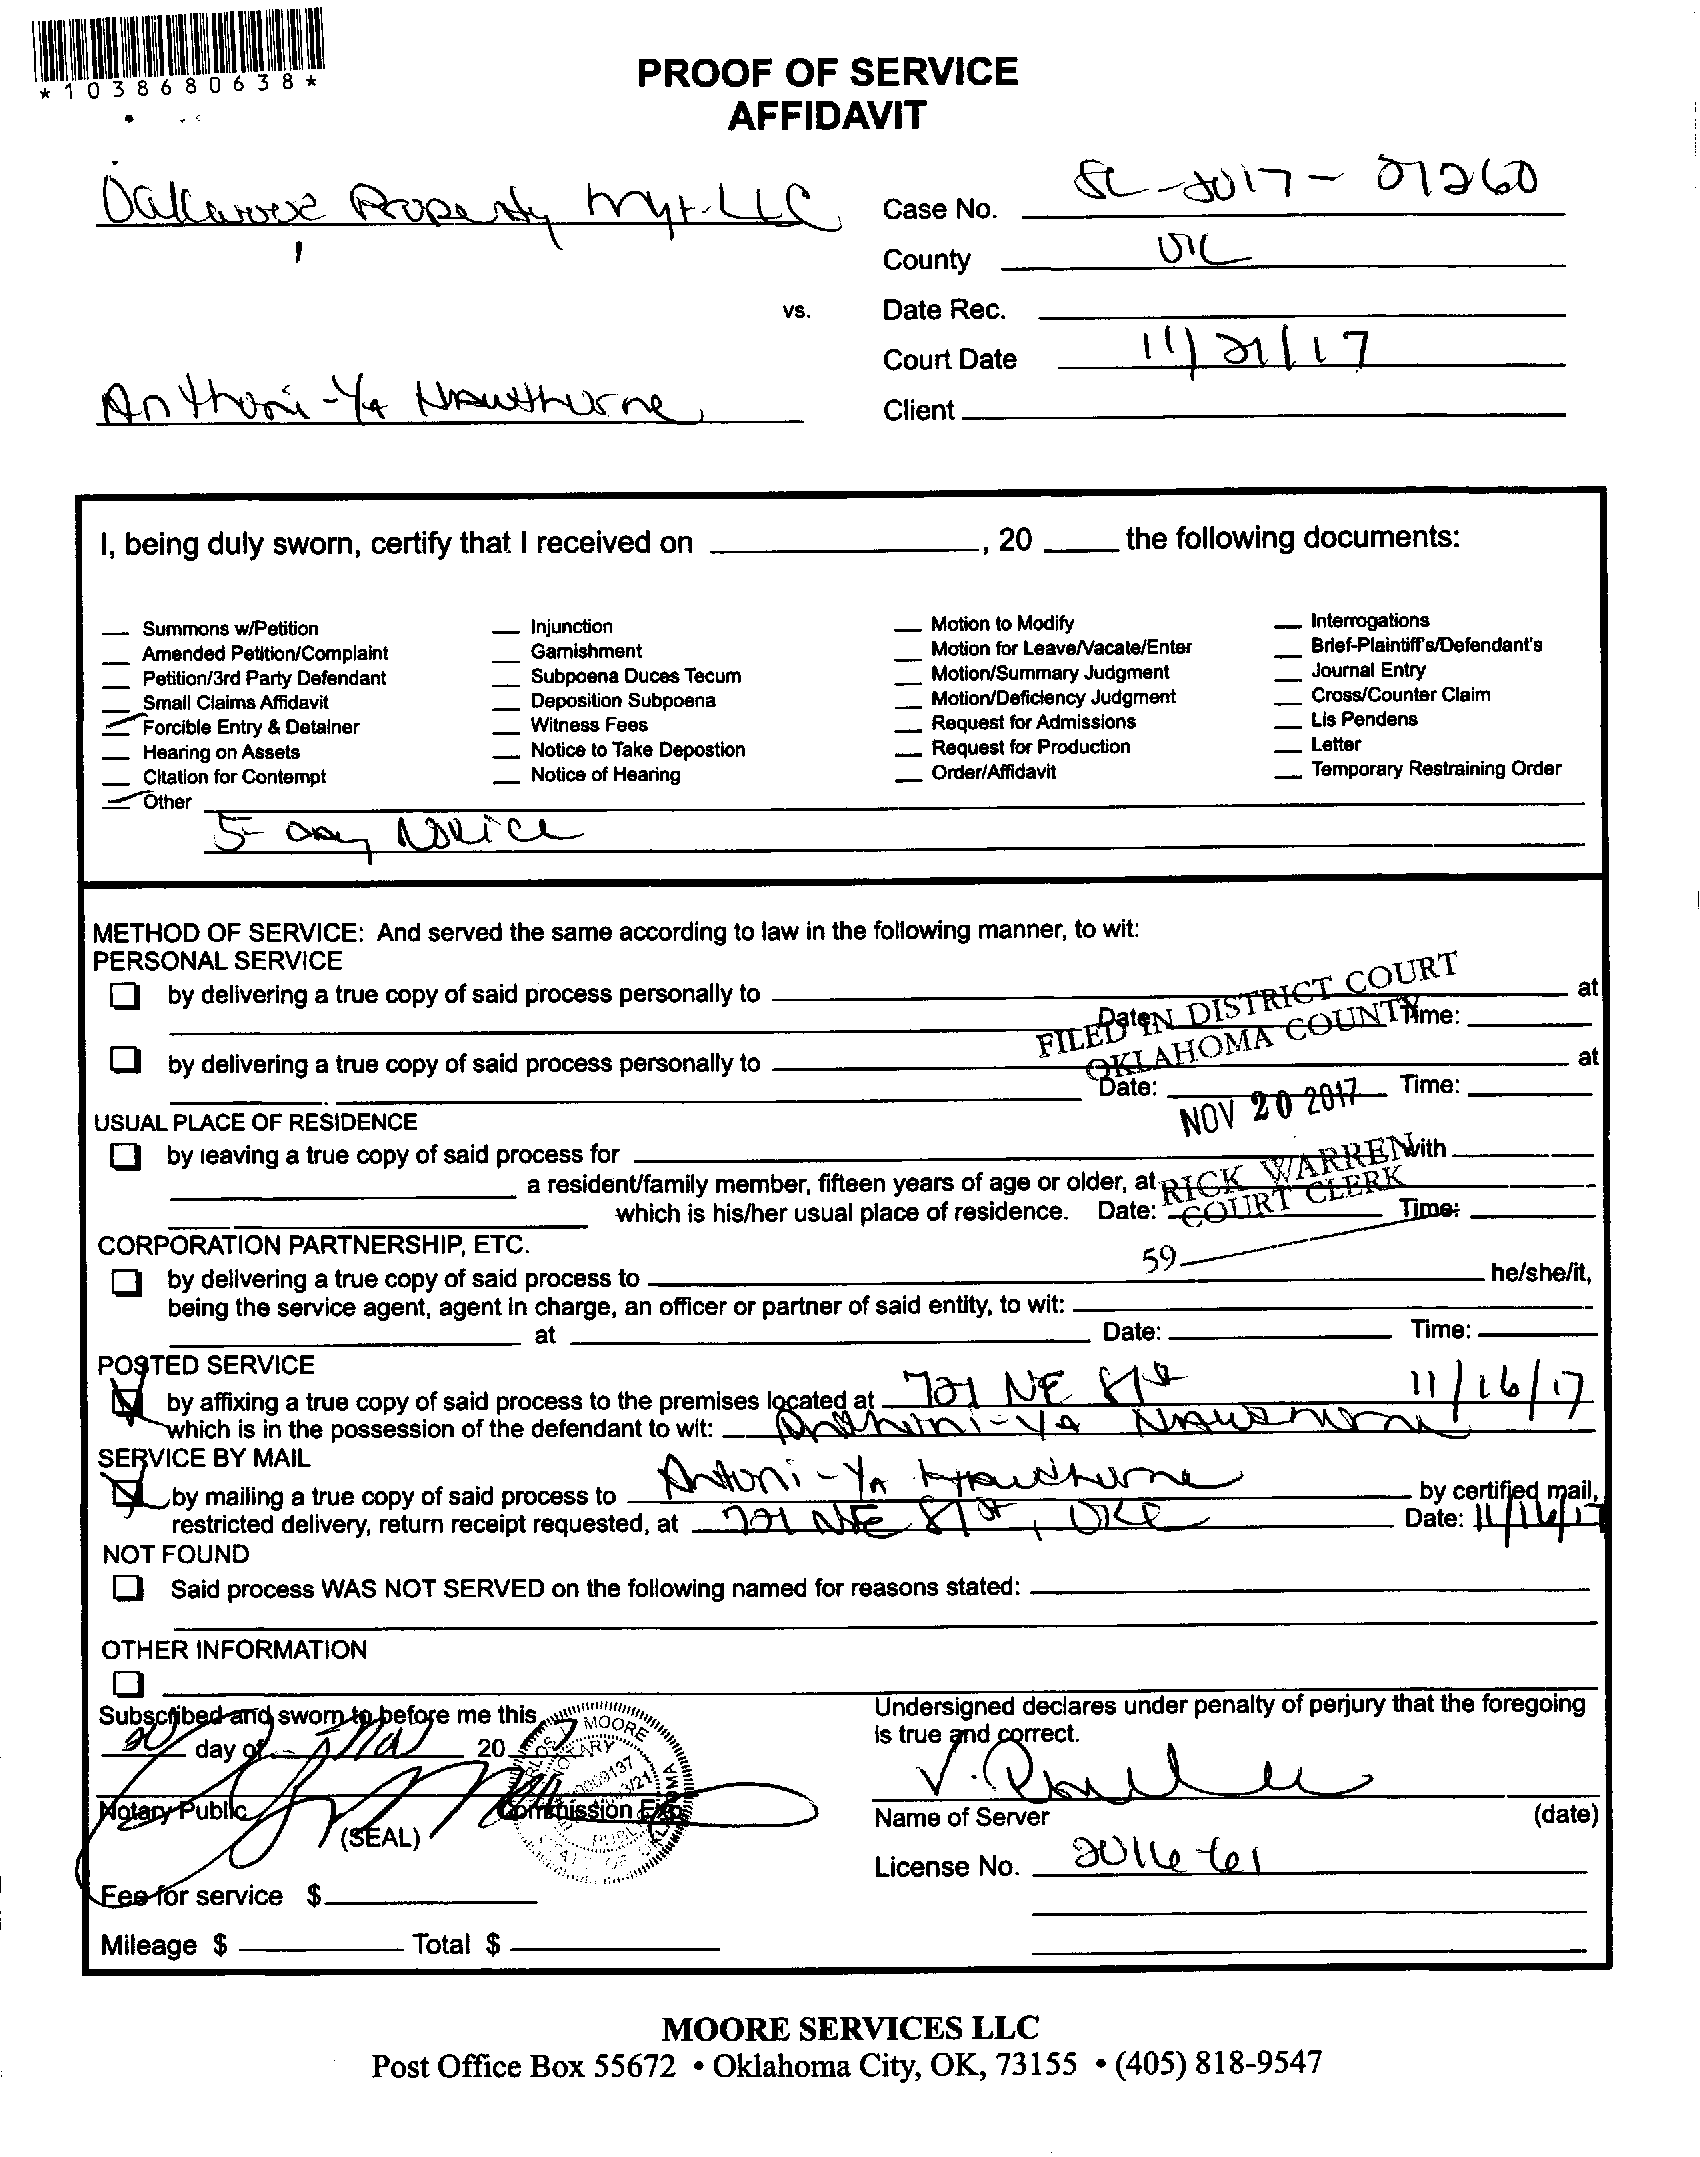 *1038680638*
PROOF OF SERVICE
AFFIDAVIT
Property Mgt. LLC
Case No. SC-2017-21260
County OK
vs.
Date Rec.
Court Date 11/21/17
Anthoni-Ya Hawthorne
Client
I, being duly sworn, certify that I received on , 20 the following documents:
Summons w/Petition
Amended Petition/Complaint
Petition/3rd Party Defendant
Small Claims Affidavit
Forcible Entry & Detainer
Hearing on Assets
Citation for Contempt
Other
Injunction
Garnishment
Subpoena Duces Tecum
Deposition Subpoena
Witness Fees
Notice to Take Depostion
Notice of Hearing
Motion to Modify
Motion for Leave/Vacate/Enter
Motion/Summary Judgment
Motion/Deficiency Judgment
Request for Admissions
Request for Production
Order/Affidavit
Interrogations
Brief-Plaintiff's/Defendant's
Journal Entry
Cross/Counter Claim
Lis Pendens
Letter
Temporary Restraining Order
5-day Notice
METHOD OF SERVICE: And served the same according to law in the following manner, to wit:
PERSONAL SERVICE
by delivering a true copy of said process personally to at
Date: Time:
by delivering a true copy of said process personally to at
Date: Time:
FILED IN DISTRICT COURT
OKLAHOMA COUNTY
NOV 20 2017
RICK WARREN
COURT CLERK
59
USUAL PLACE OF RESIDENCE
by leaving a true copy of said process for with
a resident/family member, fifteen years of age or older, at
which is his/her usual place of residence. Date: Time:
CORPORATION PARTNERSHIP, ETC.
by delivering a true copy of said process to he/she/it,
being the service agent, agent in charge, an officer or partner of said entity, to wit:
at Date: Time:
POSTED SERVICE
by affixing a true copy of said process to the premises located at 721 NE 81st 11/16/17
which is in the possession of the defendant to wit: Anthoni-Ya Hawthorne
SERVICE BY MAIL
by mailing a true copy of said process to Antoni-Ya Hawthorne by certified mail,
restricted delivery, return receipt requested, at 721 NE 81st, OKC Date: 11/16/17
NOT FOUND
Said process WAS NOT SERVED on the following named for reasons stated:
OTHER INFORMATION
Subscribed and sworn to before me this
20 day of Nov 20 17
Notary Public
(SEAL)
Commission Exp.
Fee for service $
Mileage $ Total $
Undersigned declares under penalty of perjury that the foregoing
is true and correct.
V.
Name of Server (date)
License No. 2016-61
MOORE SERVICES LLC
Post Office Box 55672 • Oklahoma City, OK, 73155 • (405) 818-9547